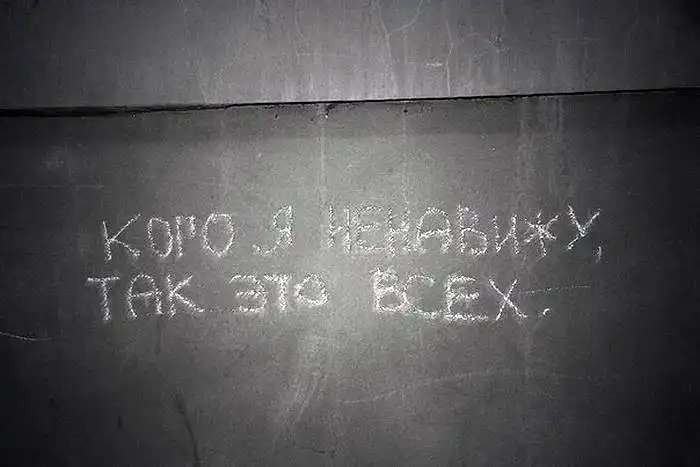 КОГО Я НЕНАВИЖУ,
ТАК ЭТО ВСЕХ.